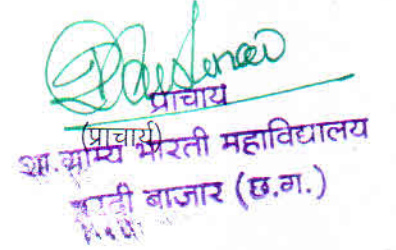 प्राचार्य
(प्राचार्य)
शा. ग्राम्य भारती महाविद्यालय
बाजार (छ.ग.)